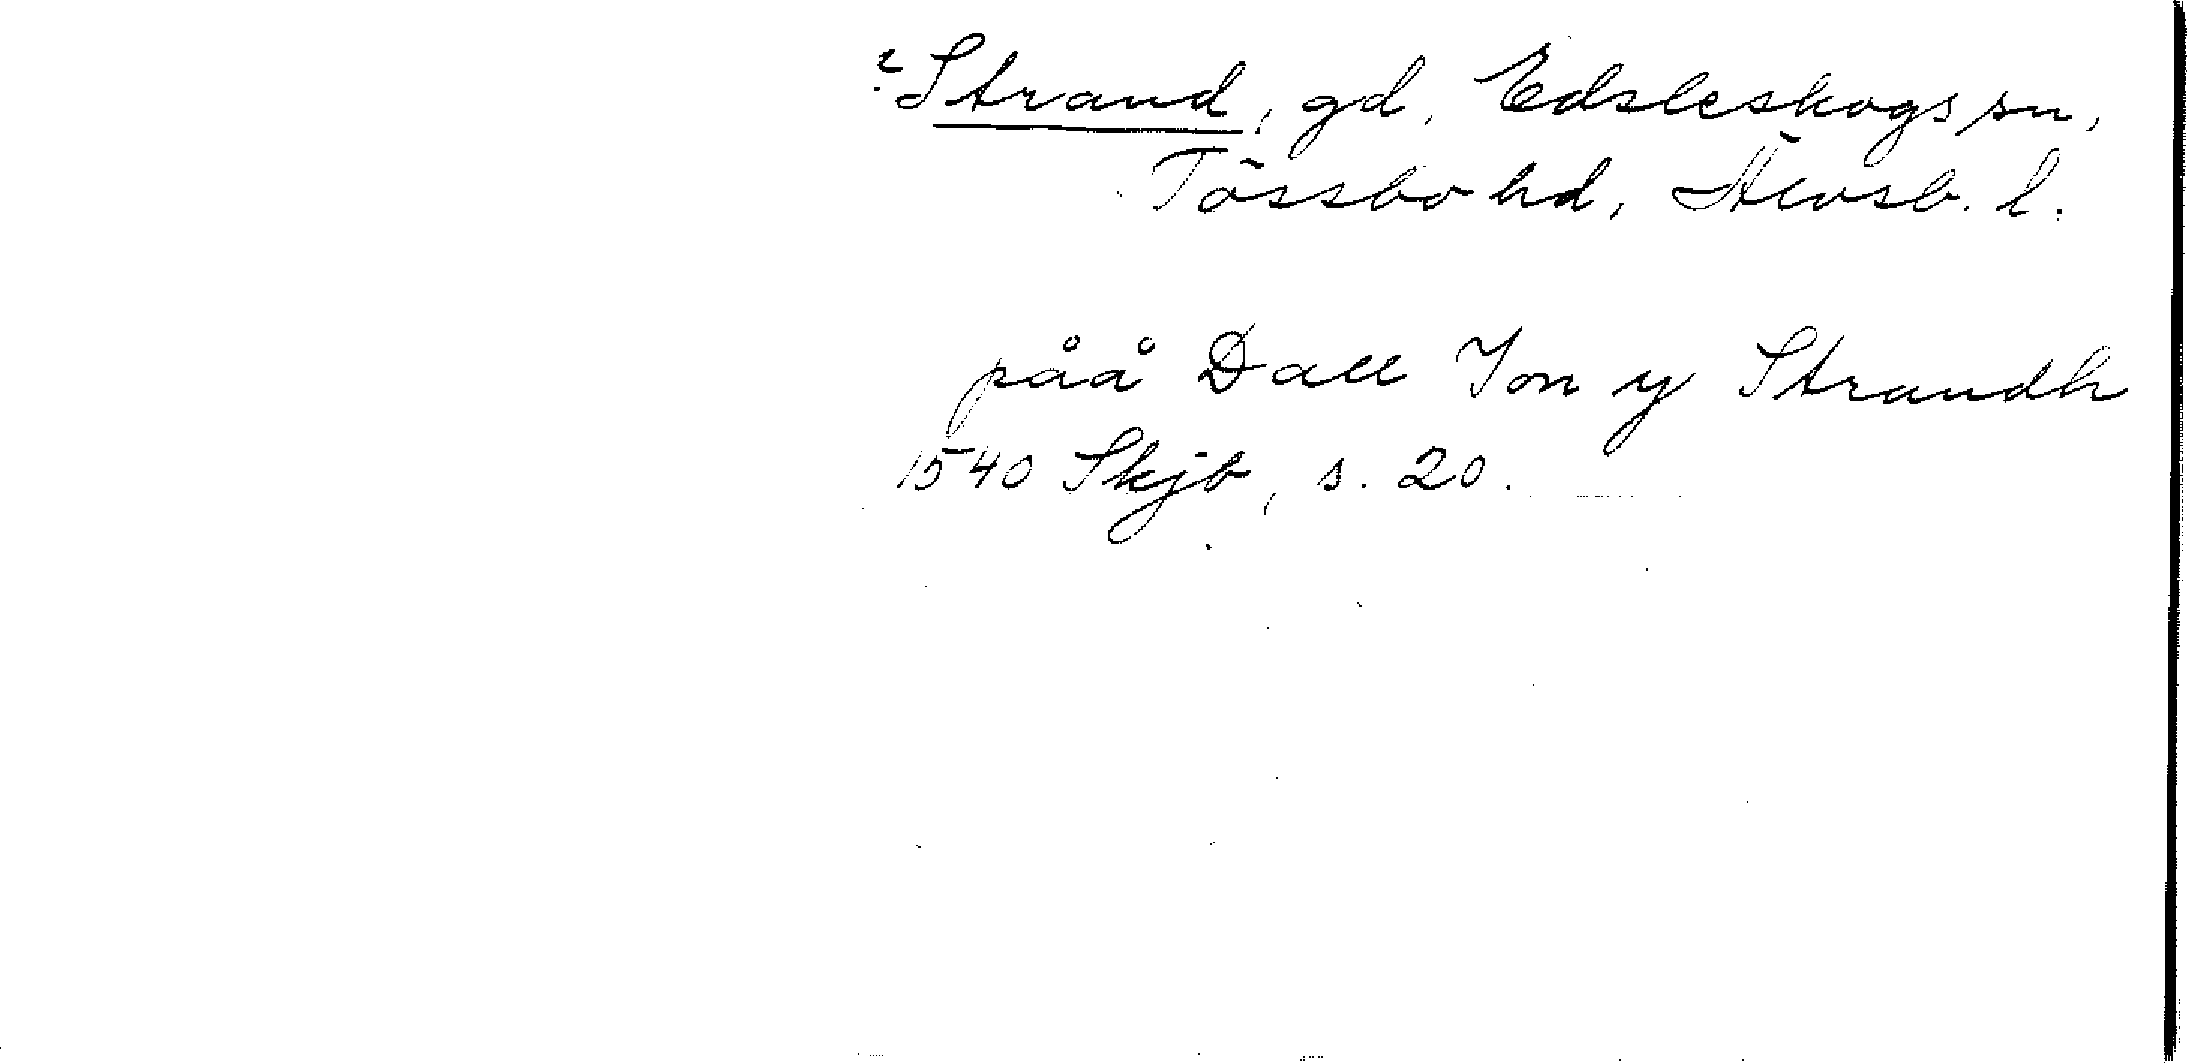 ?Strand, gd, Edsleskogs sn,
Tössbo hd, Älvsb. l.
påå Dall Jon y Strandh
1540 Skjb, s. 20.